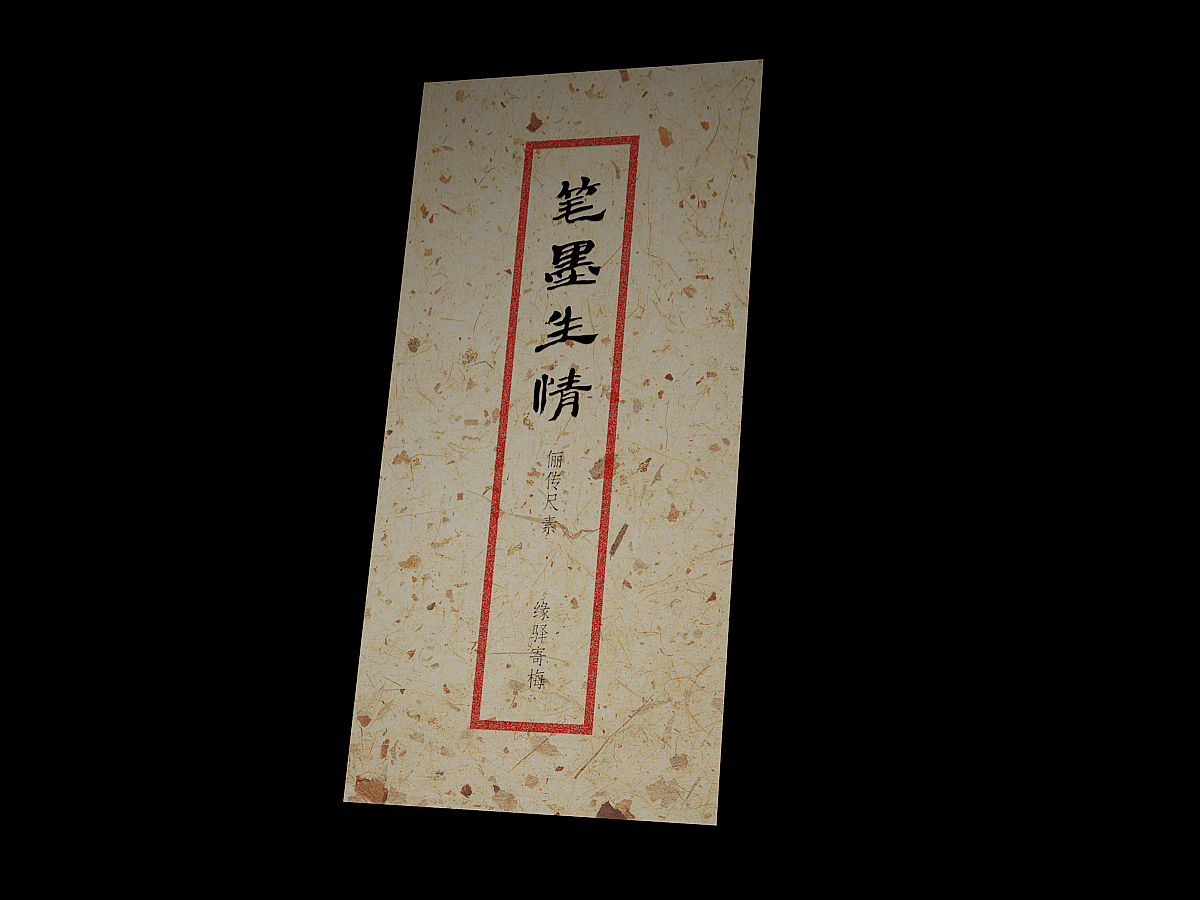 笔墨生情
俪传尺素
缘驿寄梅